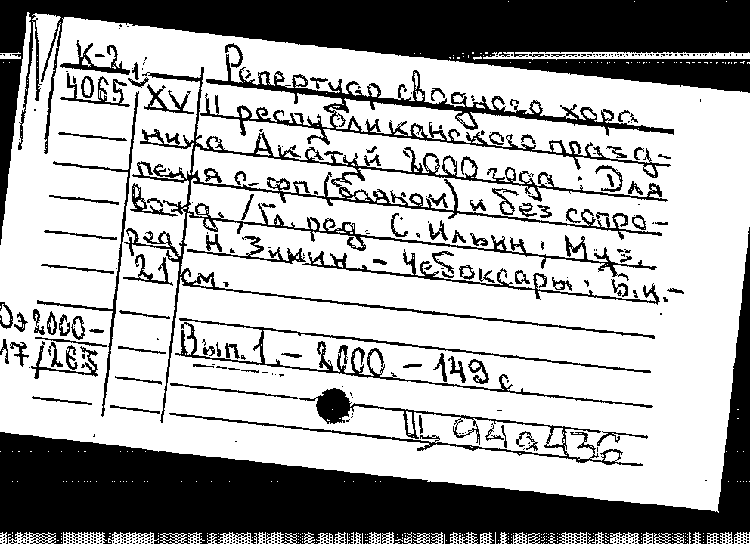 К-2
4065
Репертуар сводного хора
XVII республиканского празд-
ника Акатуй 2000 года : Для
пения с фп. (баяном) и без сопро-
вожд. / Гл. ред. С. Ильин ; Муз.
ред. Н. Зимин. - Чебоксары : Б.и. -
21 см.
Оэ 2000-
17/265
Вып. 1. - 2000. - 149 с.
Щ 94а436